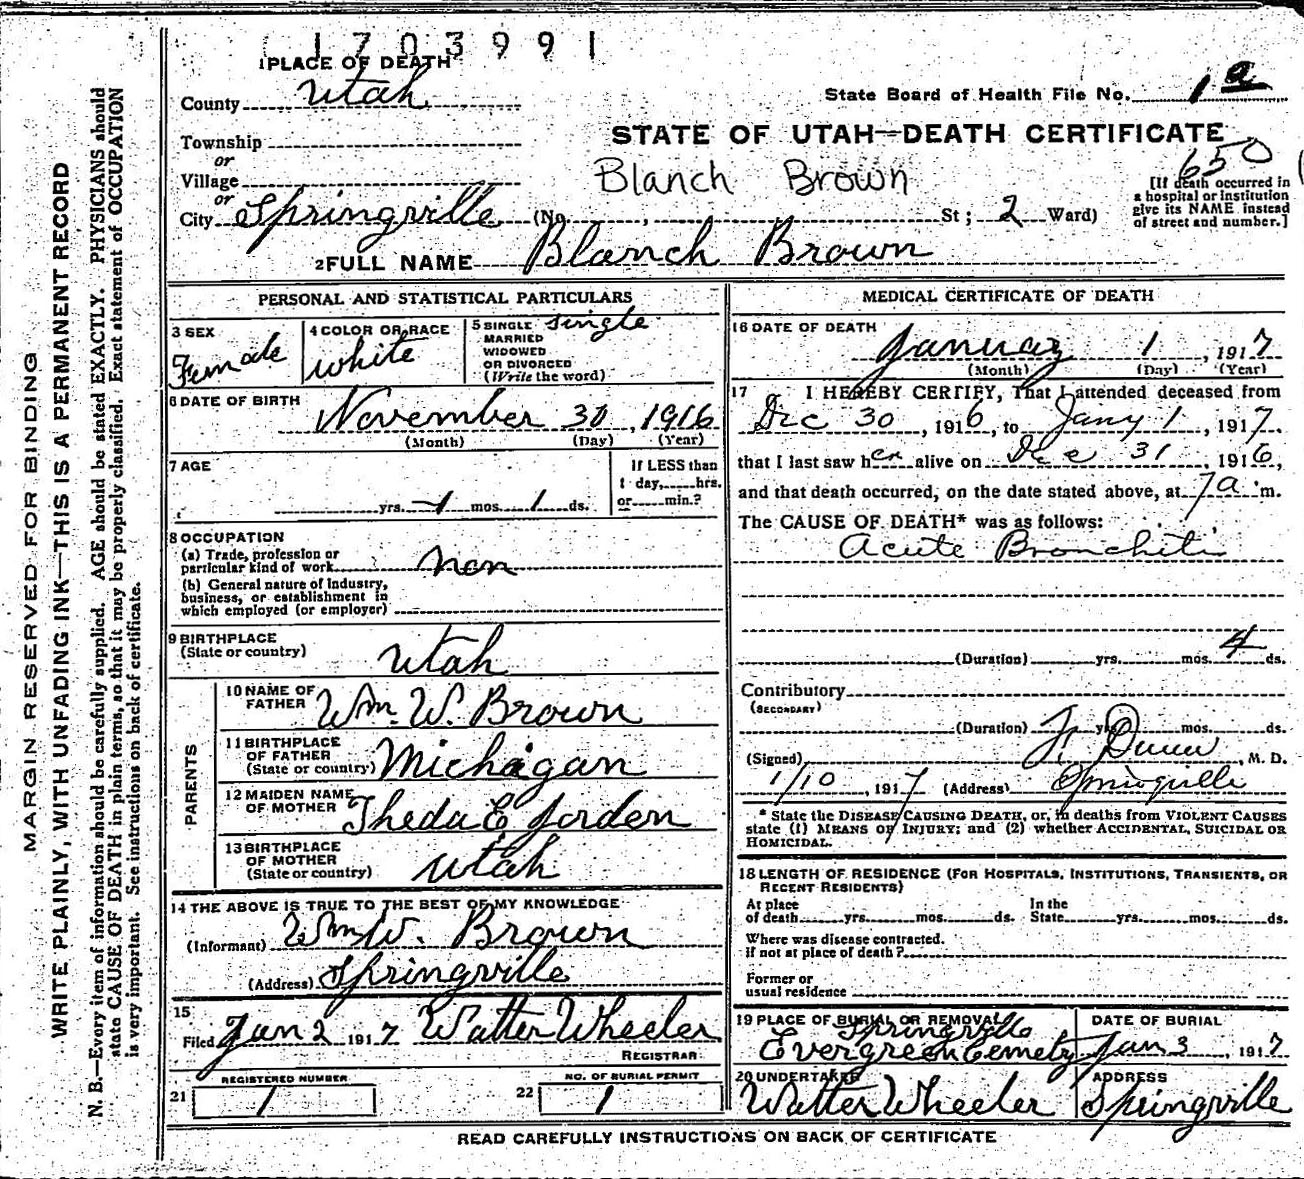 1703991
1 PLACE OF DEATH
County Utah
State Board of Health File No. 1 a
Township
or
Village
or
City Springville (No. , St; 2 Ward)
STATE OF UTAH—DEATH CERTIFICATE
650
Blanch Brown
[If death occurred in
a hospital or institution
give its NAME instead
of street and number.]
2 FULL NAME Blanch Brown
PERSONAL AND STATISTICAL PARTICULARS
3 SEX
Female
4 COLOR OR RACE
white
5 SINGLE single
MARRIED
WIDOWED
OR DIVORCED
(Write the word)
6 DATE OF BIRTH
November 30, 1916
(Month) (Day) (Year)
7 AGE
yrs. 1 mos. 1 ds.
If LESS than
1 day, hrs.
or min.?
8 OCCUPATION
(a) Trade, profession or
particular kind of work non
(b) General nature of industry,
business, or establishment in
which employed (or employer)
9 BIRTHPLACE
(State or country) Utah
PARENTS
10 NAME OF
FATHER Wm. W. Brown
11 BIRTHPLACE
OF FATHER
(State or country) Michigan
12 MAIDEN NAME
OF MOTHER Theda E Jorden
13 BIRTHPLACE
OF MOTHER
(State or country) Utah
14 THE ABOVE IS TRUE TO THE BEST OF MY KNOWLEDGE
(Informant) Wm W. Brown
(Address) Springville
15
Filed Jan 2 1917 Walter Wheeler
REGISTRAR
REGISTERED NUMBER
21 1
NO. OF BURIAL PERMIT
22 1
MEDICAL CERTIFICATE OF DEATH
16 DATE OF DEATH
January 1, 1917
(Month) (Day) (Year)
17 I HEREBY CERTIFY, That I attended deceased from
Dec 30, 1916, to Jany 1, 1917.
that I last saw her alive on Dec 31, 1916,
and that death occurred, on the date stated above, at 7 a m.
The CAUSE OF DEATH* was as follows:
Acute Bronchitis
(Duration) yrs. mos. 4 ds.
Contributory
(SECONDARY)
(Duration) yrs. mos. ds.
(Signed) F. Dunn, M. D.
1/10, 1917 (Address) Springville
* State the DISEASE CAUSING DEATH, or, in deaths from VIOLENT CAUSES
state (1) MEANS OF INJURY; and (2) whether ACCIDENTAL, SUICIDAL OR
HOMICIDAL.
18 LENGTH OF RESIDENCE (FOR HOSPITALS, INSTITUTIONS, TRANSIENTS, OR
RECENT RESIDENTS)
At place
of death yrs. mos. ds.
In the
State yrs. mos. ds.
Where was disease contracted.
if not at place of death?
Former or
usual residence
19 PLACE OF BURIAL OR REMOVAL
Springville
Evergreen Cemety
DATE OF BURIAL
Jan 3, 1917
20 UNDERTAKER
Walter Wheeler
ADDRESS
Springville
READ CAREFULLY INSTRUCTIONS ON BACK OF CERTIFICATE
MARGIN RESERVED FOR BINDING
WRITE PLAINLY, WITH UNFADING INK—THIS IS A PERMANENT RECORD
N. B.—Every item of information should be carefully supplied. AGE should be stated EXACTLY. PHYSICIANS should
state CAUSE OF DEATH in plain terms, so that it may be properly classified. Exact statement of OCCUPATION
is very important. See instructions on back of certificate.